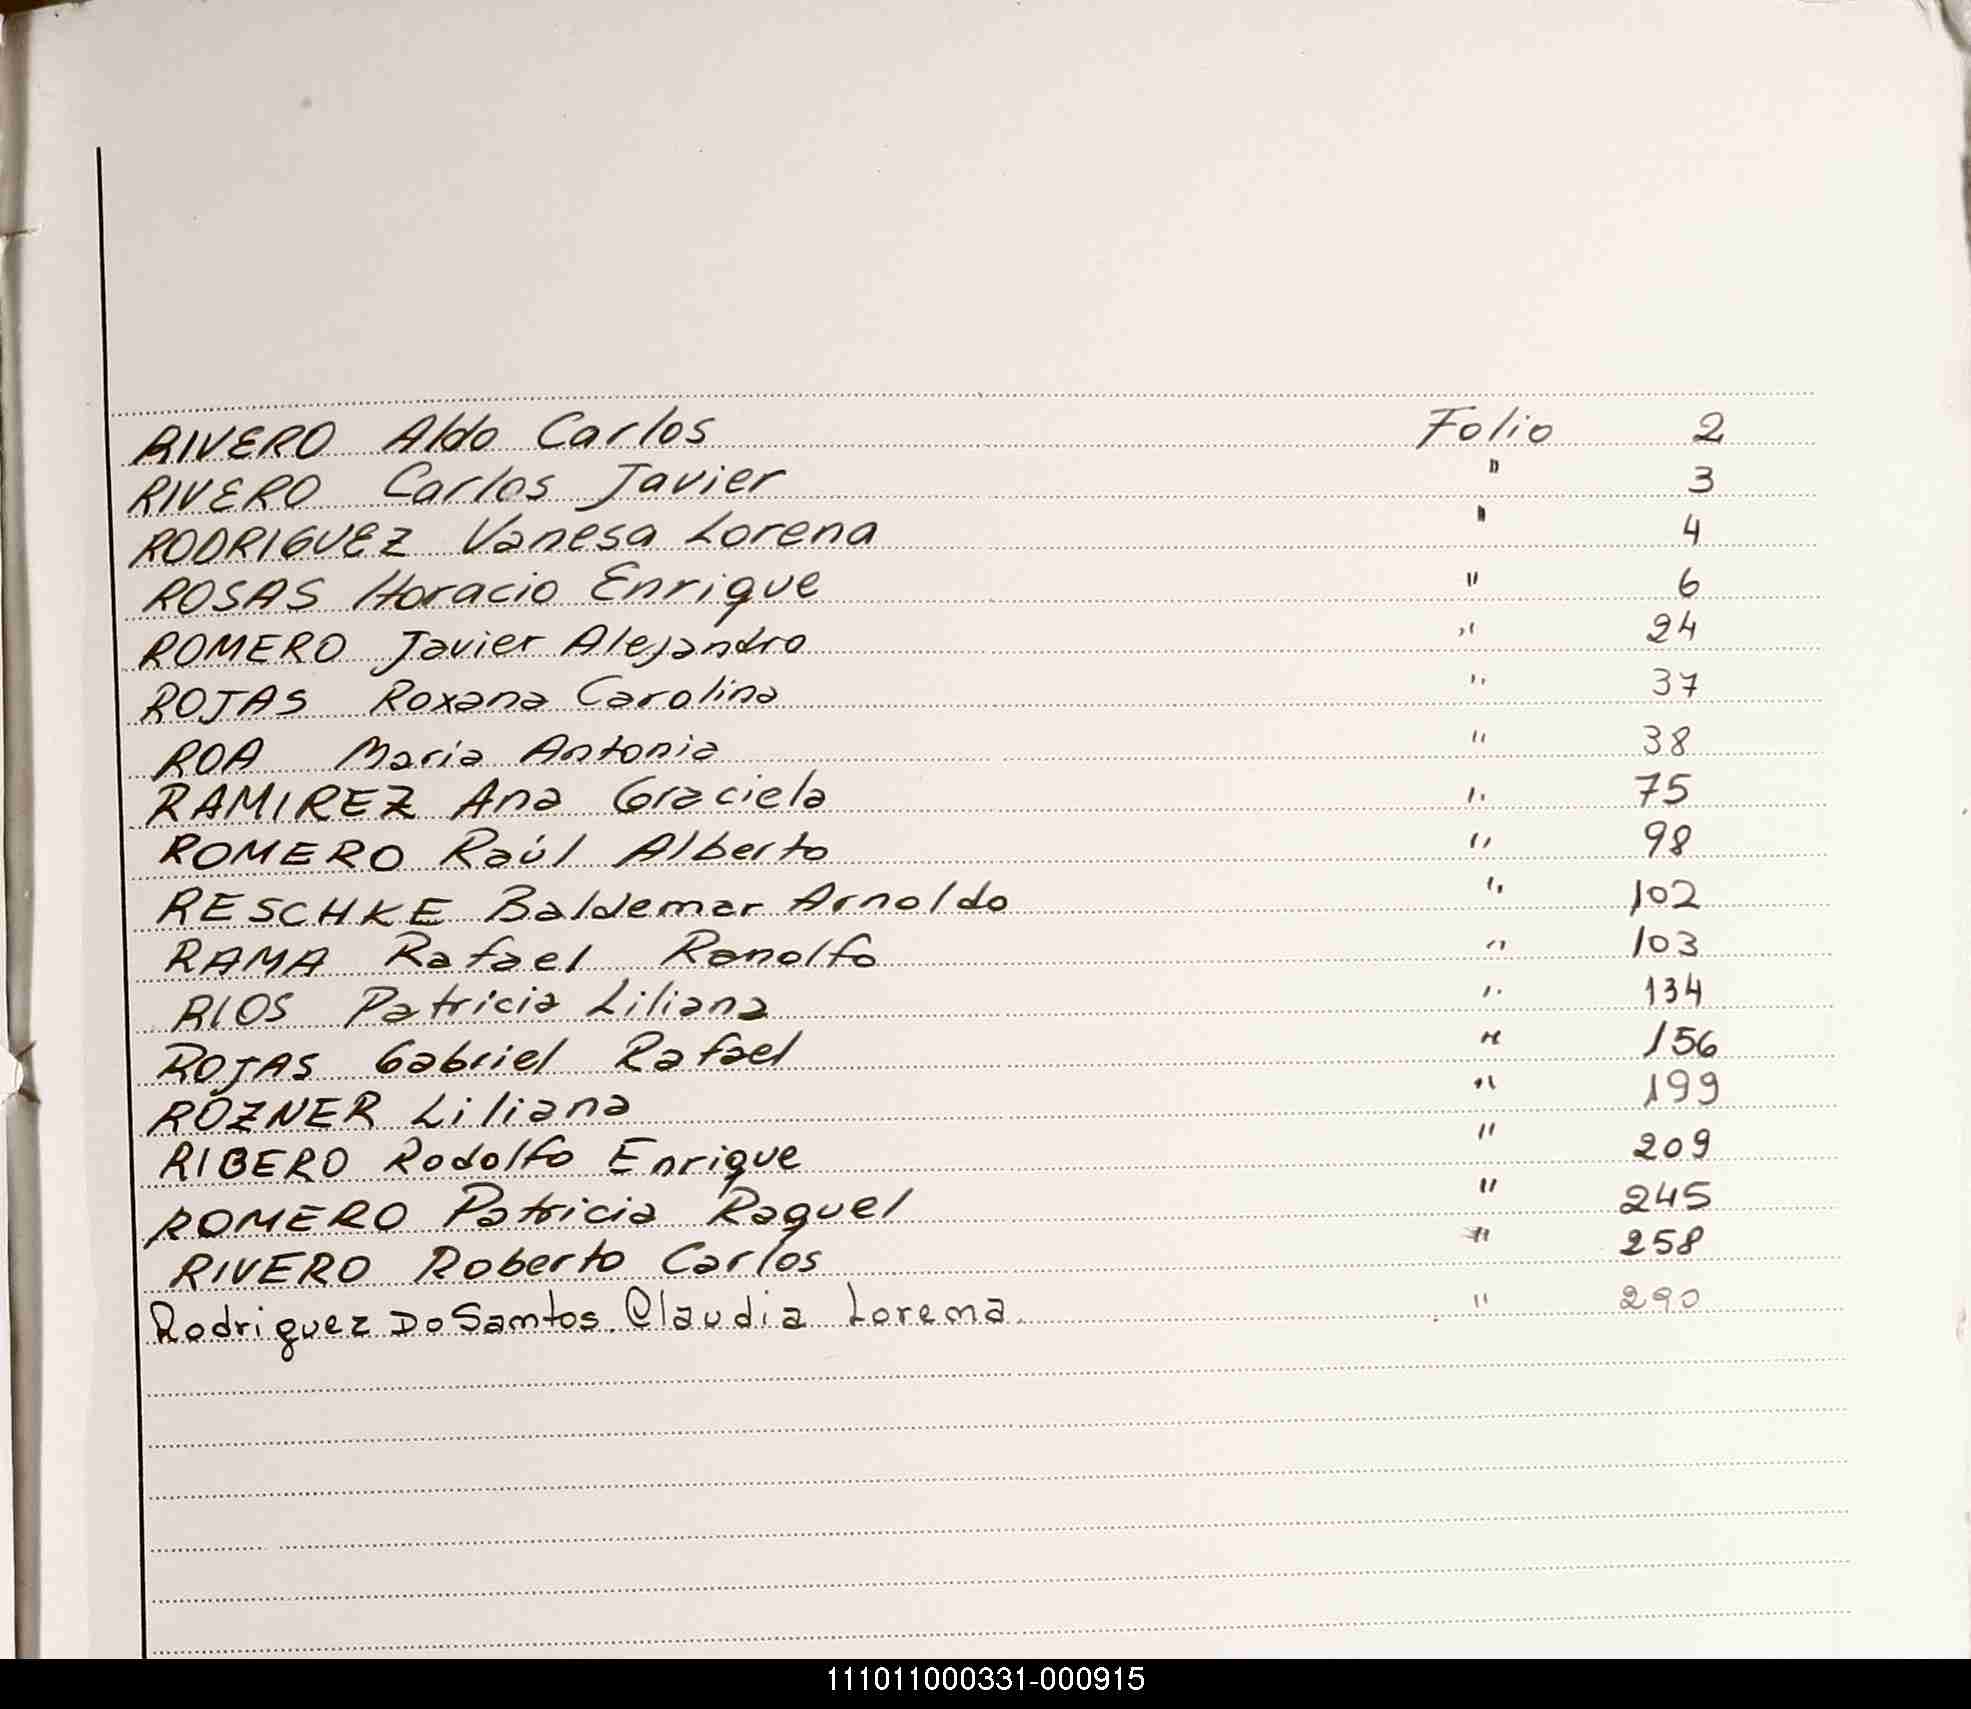 RIVERO Aldo Carlos Folio 2
RIVERO Carlos Javier " 3
RODRIGUEZ Vanesa Lorena " 4
ROSAS Horacio Enrique " 6
ROMERO Javier Alejandro " 24
ROJAS Roxana Carolina " 37
ROA Maria Antonia " 38
RAMIREZ Ana Graciela " 75
ROMERO Raúl Alberto " 98
RESCHKE Baldemar Arnoldo " 102
RAMA Rafael Ranolfo " 103
RIOS Patricia Liliana " 134
ROJAS Gabriel Rafael " 156
ROZNER Liliana " 199
RIBERO Rodolfo Enrique " 209
ROMERO Patricia Raquel " 245
RIVERO Roberto Carlos " 258
Rodriguez Do Santos. Claudia Lorena. " 290
111011000331-000915